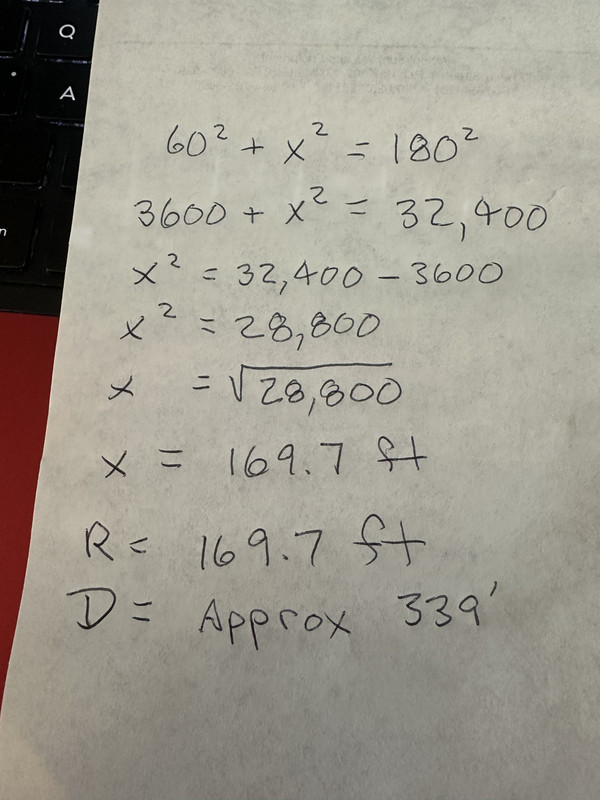 Q
A
60² + x² = 180²
3600 + x² = 32,400
x² = 32,400 - 3600
x² = 28,800
x = √28,800
x = 169.7 ft
R = 169.7 ft
D = Approx 339'